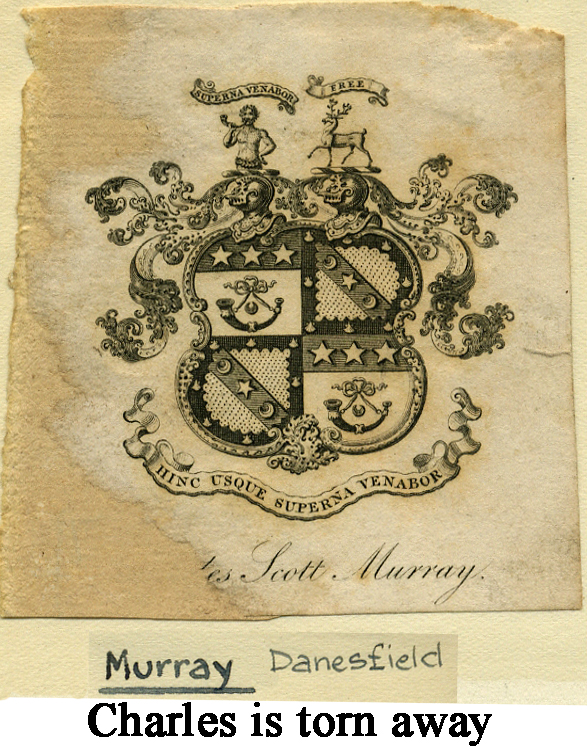 SUPERNA VENABOR
FREE
HINC USQUE SUPERNA VENABOR
es Scott Murray.
Murray Danesfield
Charles is torn away